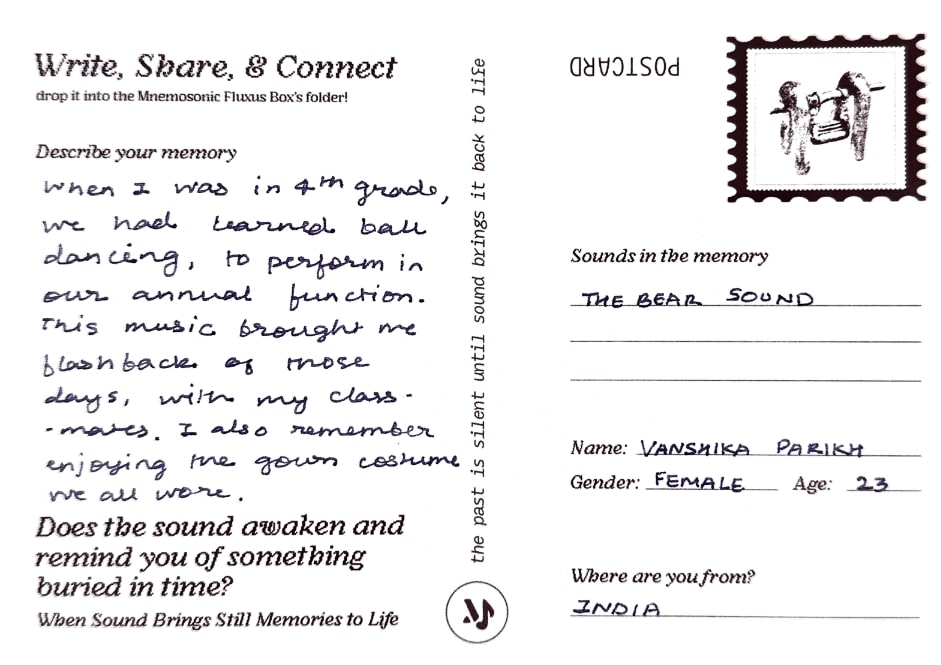 Write, Share, & Connect
drop it into the Mnemosonic Fluxus Box's folder!
Describe your memory
When I was in 4th grade,
we had learned ball
dancing, to perform in
our annual function.
This music brought me
flashback of those
days, with my class-
-mates. I also remember
enjoying the gown costume
we all wore.
Does the sound awaken and
remind you of something
buried in time?
When Sound Brings Still Memories to Life
the past is silent until sound brings it back to life
POSTCARD
Sounds in the memory
THE BEAR SOUND
Name: VANSHIKA PARIKH
Gender: FEMALE Age: 23
Where are you from?
INDIA